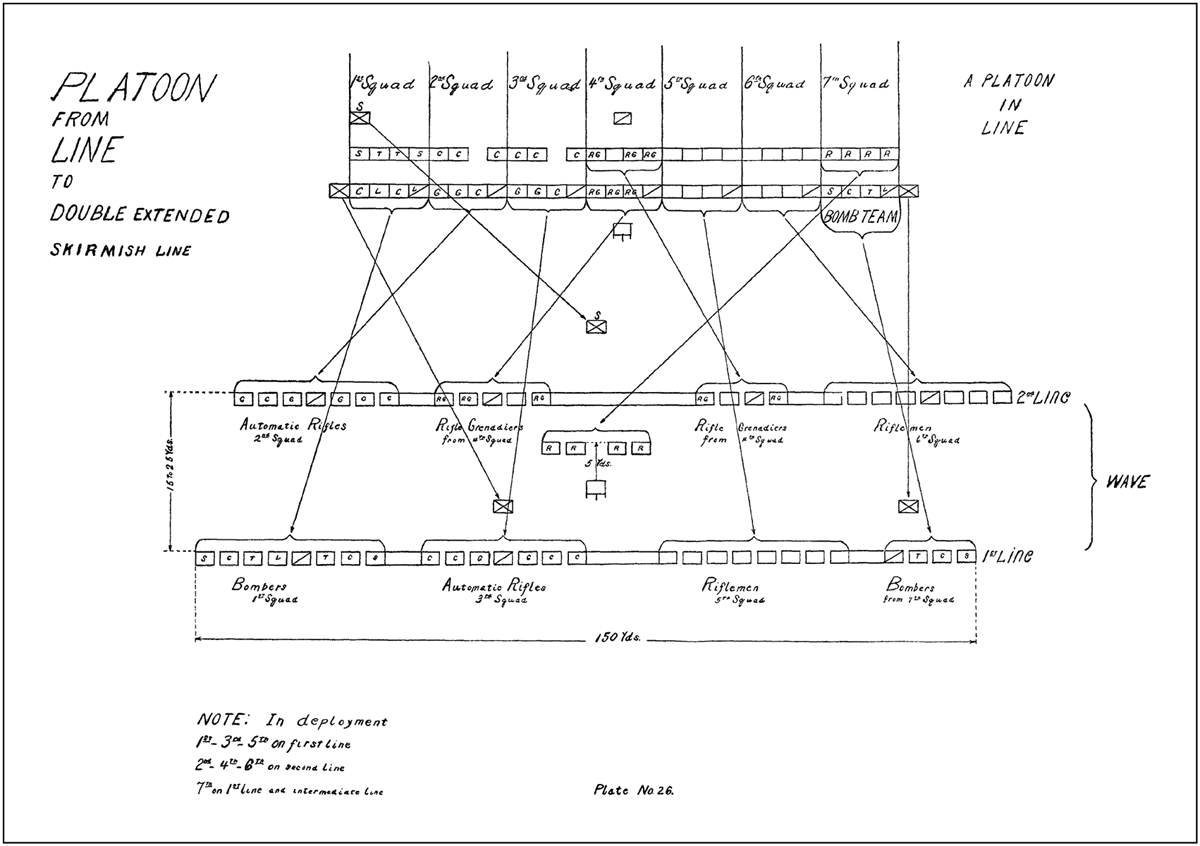 PLATOON
FROM
LINE
TO
DOUBLE EXTENDED
SKIRMISH LINE
A PLATOON
IN
LINE
1ST Squad 2nd Squad 3rd Squad 4th Squad 5th Squad 6th Squad 7th Squad
S
S T T S C C C C C RG RG RG R R R R
C L C L G G C G G C RG RG RG S C T L
BOMB TEAM
S
G G G G C C RG RG RG RG RG 2nd LINE
Automatic Rifles
2nd Squad
Rifle Grenadiers
from 4th Squad
Rifle Grenadiers
from 4th Squad
Riflemen
6th Squad
R R R R
5 Yds.
15 To 25 Yds.
WAVE
S C T L T C S C C G G C C T C S 1ST LINE
Bombers
1ST Squad
Automatic Rifles
3rd Squad
Riflemen
5TH Squad
Bombers
from 7TH Squad
150 Yds.
NOTE: In deployment
1ST- 3rd- 5TH on first line
2nd- 4TH- 6TH on second line
7TH on 1ST line and intermediate line
Plate No. 26.